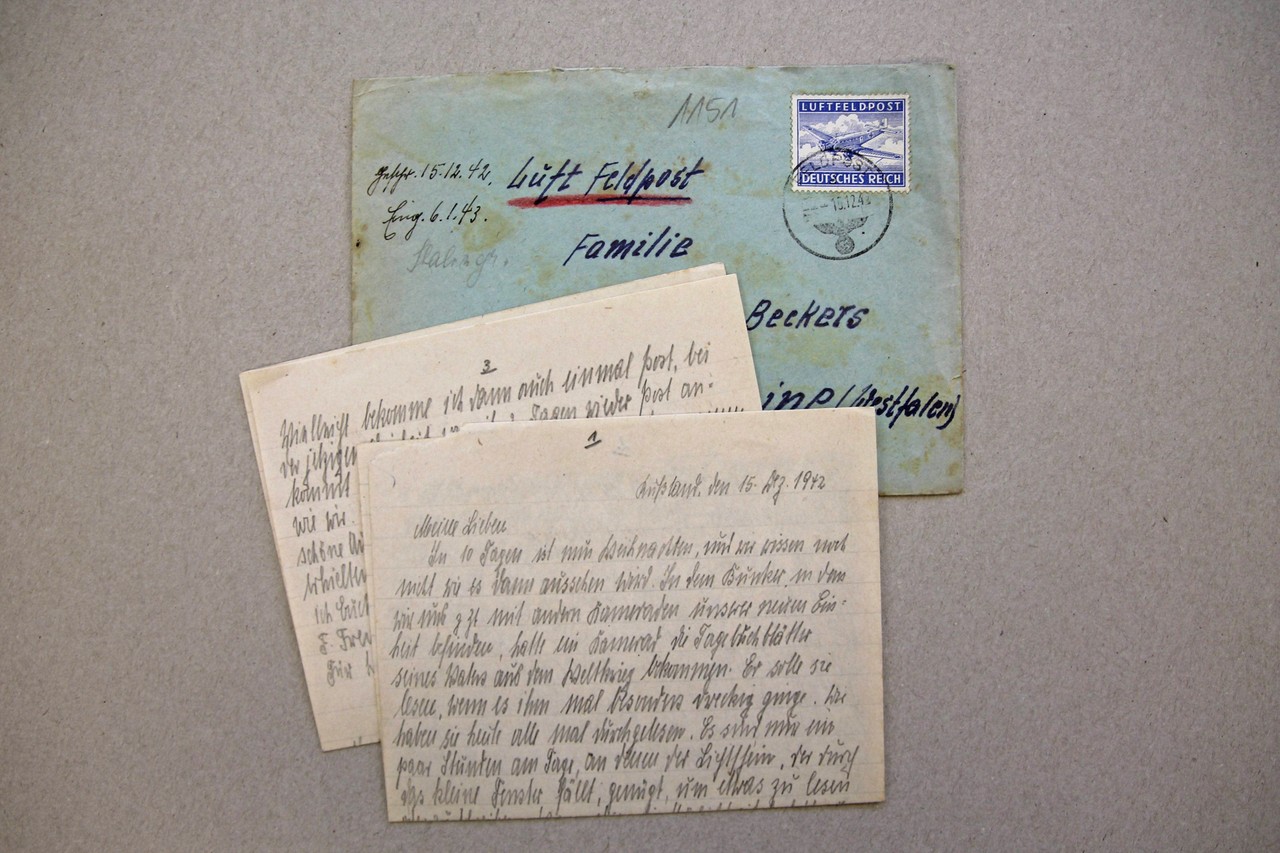 1151
LUFTFELDPOST
DEUTSCHES REICH
FELDPOST
15.12.42
Geschr. 15.12.42.
Eing. 6.1.43.
Stalingr.
Luft Feldpost
Familie
Beckers
ine (Westfalen)
3
Vielleicht bekomme ich dann auch einmal Post, bei
der jetzigen Tagen wieder Post an-
kommt
wie wir.
schöne
erhielten
ich
F.
Für
1
Rußland, den 15. Dez. 1942
Meine Lieben
In 10 Tagen ist nun Weihnachten, und wir wissen noch
nicht wie es dann aussehen wird. In dem Bunker, in dem
wir uns z. Zt. mit andern Kameraden unserer neuen Ein-
heit befinden, hatte ein Kamerad die Tagebuchblätter
seines Vaters aus dem Weltkrieg bekommen. Er solle sie
lesen, wenn es ihm mal besonders dreckig ginge. Wir
haben sie heute alle mal durchgelesen. Es sind nur ein
paar Stunden am Tage, an denen der Lichtschein, der durch
das kleine Fenster fällt, genügt, um etwas zu lesen